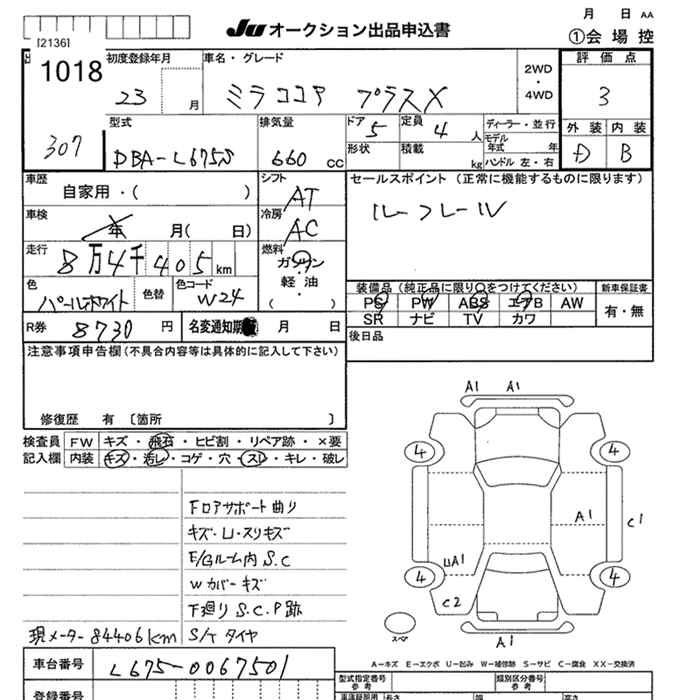 月 日 AA
JU オークション出品申込書
①会場控
[2136]
1018
307
初度登録年月
23 月
車名・グレード
ミラココア プラスX
2WD
・
4WD
評価点
3
外装 内装
D B
型式
DBA-L675S
排気量
660 cc
ドア 5
定員 4 人
形状
積載 kg
ディーラー・並行
モデル年式 年
ハンドル 左・右
車歴
自家用・( )
シフト
AT
セールスポイント (正常に機能するものに限ります)
ルーフレール
車検
年 月( 日)
冷房
AC
走行
8万4千405km
燃料
ガソリン
・
軽油
( )
色
パールホワイト
色替
色コード
W24
装備品(純正品に限り○をつけてください)
PS PW ABS エアB AW
SR ナビ TV カワ
新車保証書
有・無
R券 8730 円
名変通知期 月 日
後日品
注意事項申告欄(不具合内容等は具体的に記入して下さい)
修復歴 有 〔箇所 〕
検査員
記入欄
FW キズ・飛石・ヒビ割・リペア跡・×要
内装 キズ・汚レ・コゲ・穴・スレ・キレ・破レ
Fロアサポート曲り
キズ・U・スリキズ
E/Gルーム内 S.C
Wカバーキズ
下廻り S.C.P跡
現メーター 84406km
S/T タイヤ
A1 A1
4 4
A1
C1
UA1
4 4
C2
スペア
A1
A-キズ E-エクボ U-凹み W-補修跡 S-サビ C-腐食 XX-交換済
車台番号
L675-0067501
登録番号
型式指定番号
参考
類別区分番号
参考
長さ
幅
高さ